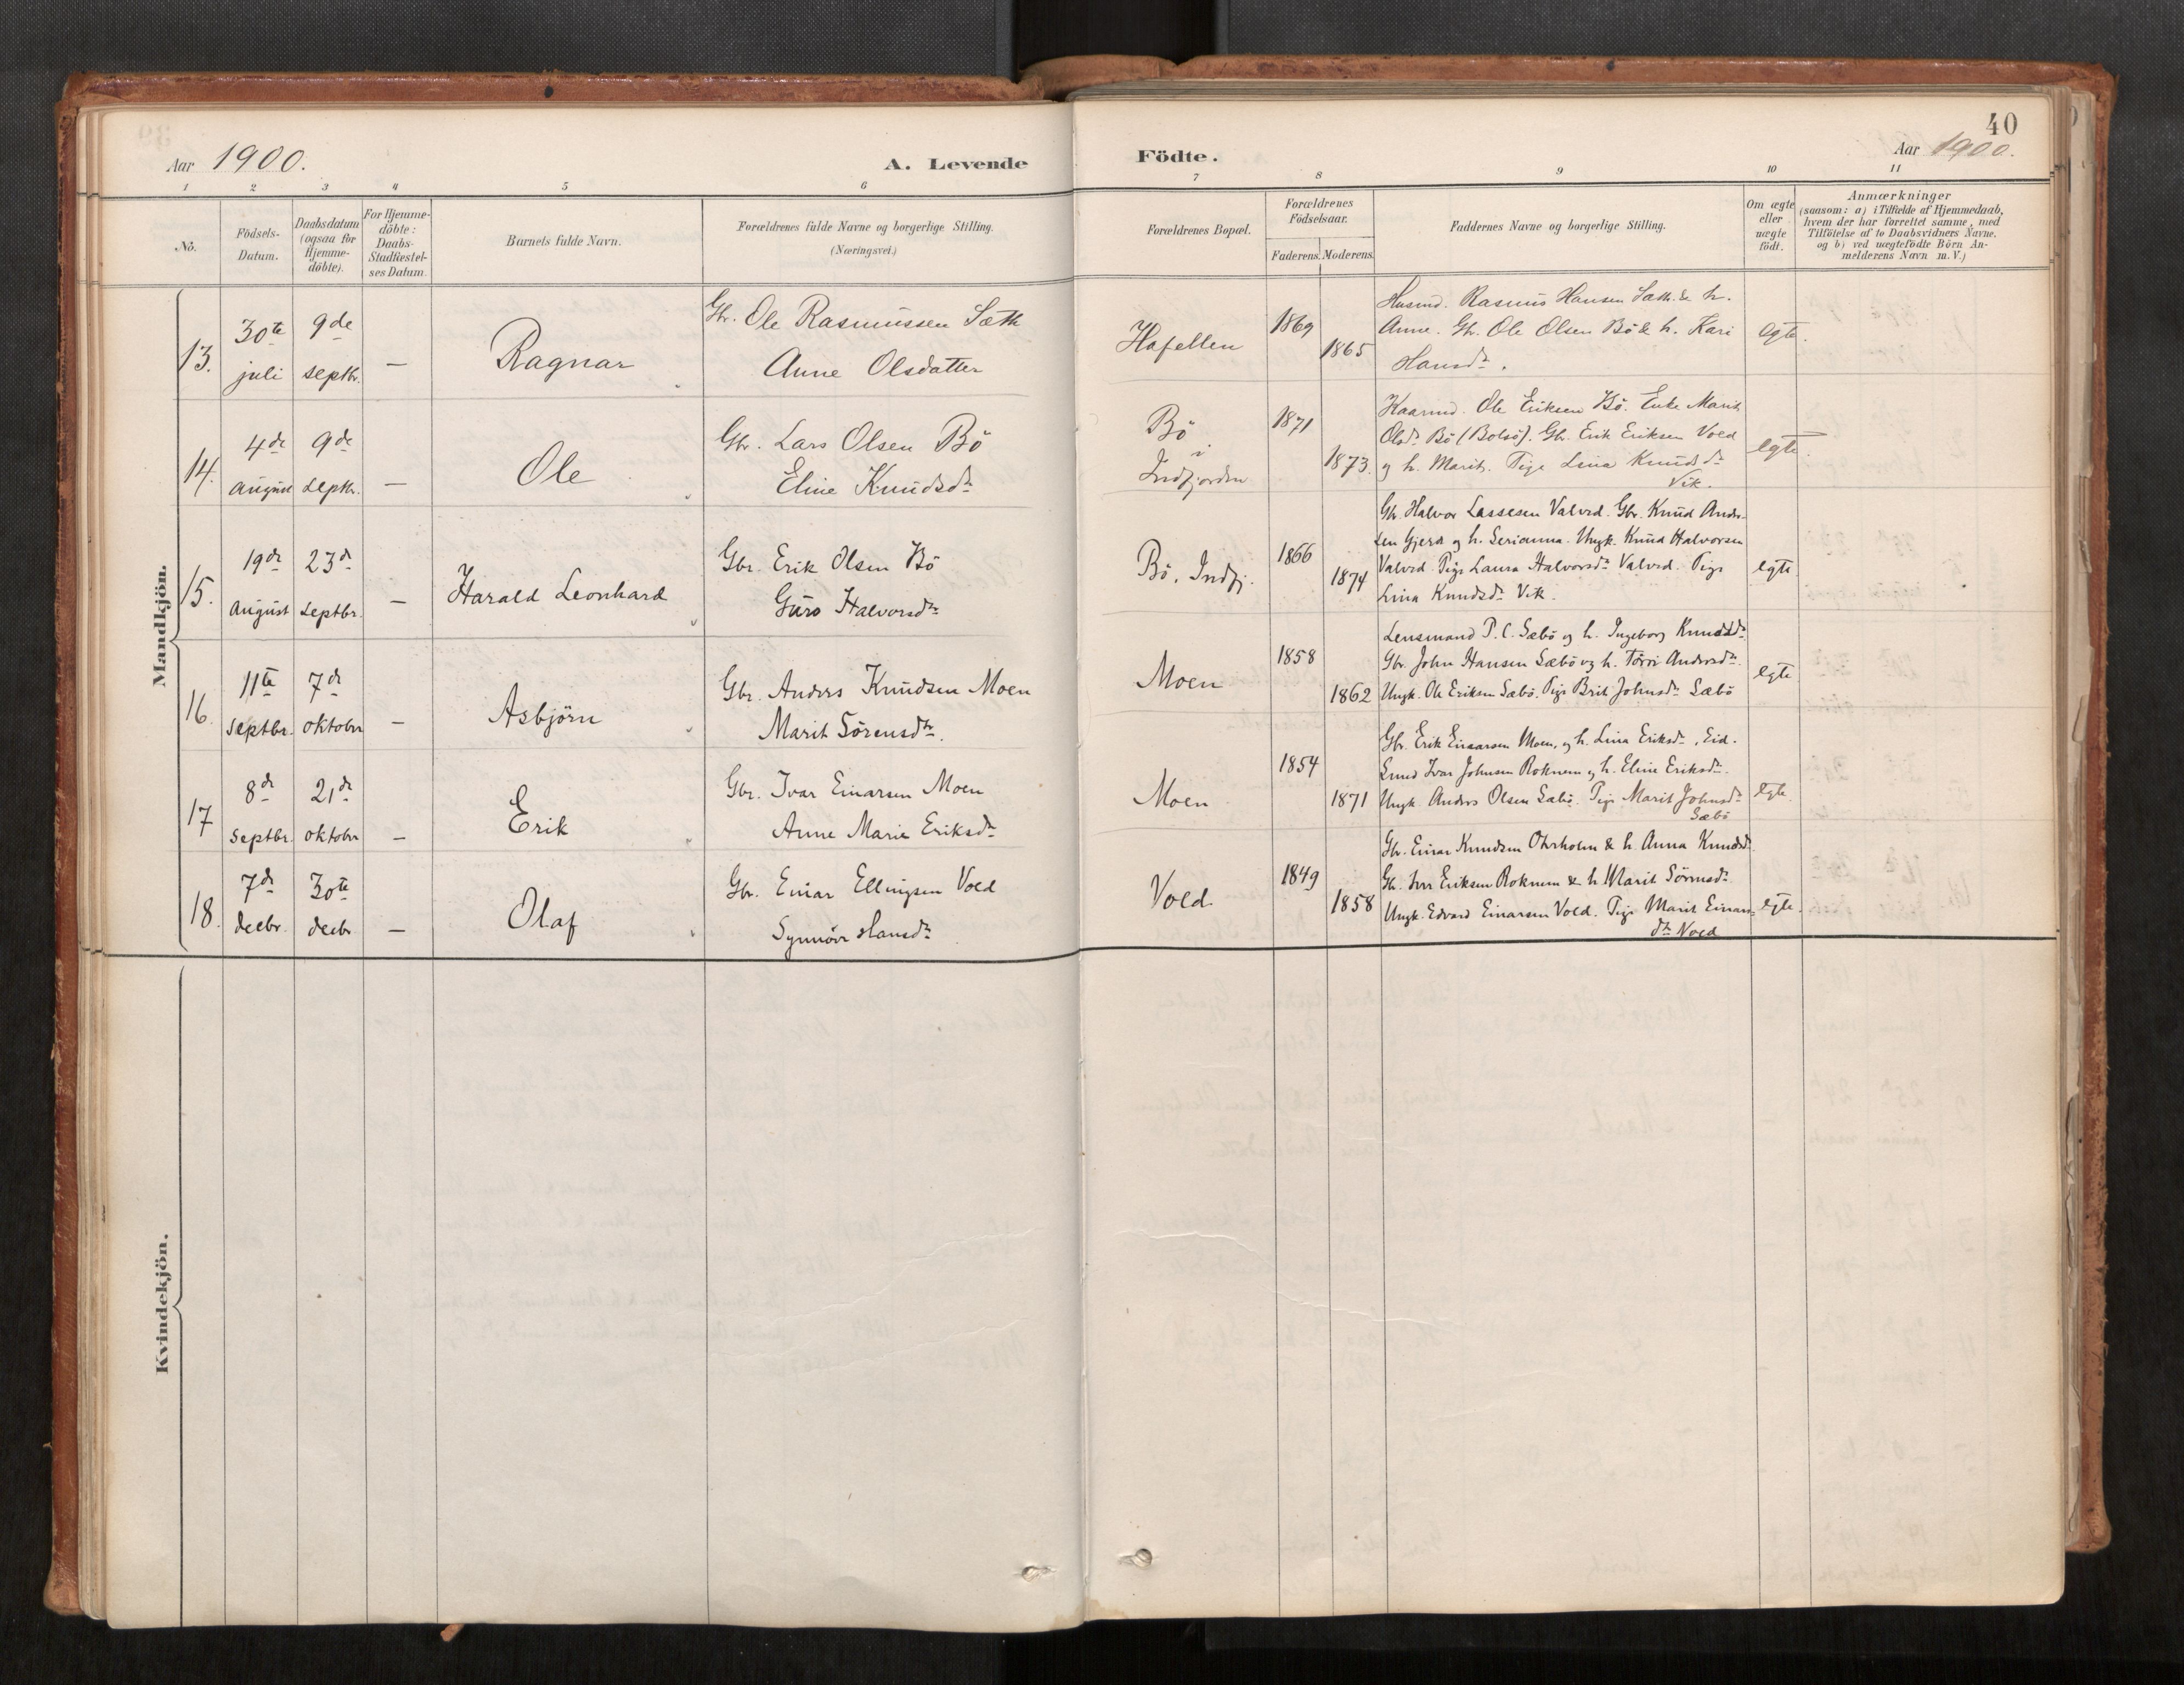 40
Aar 1900.
A. Levende Födte.
Aar 1900.
1 2 3 4 5 6 7 8 9 10 11
No.
Födsels-
Datum.
Daabsdatum
(ogsaa for
Hjemme-
döbte).
For Hjemme-
döbte:
Daabs-
Stadfæstel-
ses Datum.
Barnets fulde Navn.
Forældrenes fulde Navne og borgerlige Stilling.
(Næringsvei.)
Forældrenes Bopæl.
Forældrenes
Födselsaar.
Faderens. Moderens.
Faddernes Navne og borgerlige Stilling.
Om ægte
eller
uægte
födt.
Anmærkninger
(saasom: a) i Tilfælde af Hjemmedaab,
hvem der har forrettet samme, med
Tilföielse af to Daabsvidners Navne.
og b) ved uægtefödte Börn An-
melderens Navn m.V.)
Mandkjön.
13.
30te
juli
9de
septbr.
—
Ragnar
Gbr. Ole Rasmussen Sæth
Anne Olsdatter
Hafellen
1869
1865
Husmd. Rasmus Hansen Sæth. & h.
Anne. Gbr. Ole Olsen Bö & h. Kari
Hansdr.
egte.
14.
4de
August
9de
Septbr.
—
Ole
Gbr. Lars Olsen Bö
Eline Knudsdr
Bö
i
Indfjorden
1871
1873.
Kaarmd. Ole Eriksen Bö. Enke Marit
Olsdr Bö (Bolsö). Gbr. Erik Eriksen Vold
og h. Marit. Pige Lina Knudsdr
Vik.
egte.
15.
19de
August
23de
Septbr.
—
Harald Leonhard
Gbr. Erik Olsen Bö
Guro Halvorsdr
Bö, Indfj.
1866
1874
Gbr. Halvor Lassesen Valved. Gbr. Knud Ander-
sen Gjerde og h. Serianna. Ungk. Knud Halvorsen
Valved. Pige Laura Halvorsdr Valved. Pige
Lina Knudsdr Vik.
egte.
16.
11te
Septbr.
7de
oktober
—
Asbjörn
Gbr. Anders Knudsen Moen
Marit Sörensdtr.
Moen
1858
1862
Lensmand P. C. Sæbö og h. Ingeborg Knudsdr
Gbr. John Hansen Sæbö og h. Andersdr.
Ungk. Ole Eriksen Sæbö. Pige Brit Johnsdr Sæbö
egte
17
8de
Septbr.
21de
oktober
—
Erik
Gbr. Ivar Einarsen Moen
Anne Marie Eriksdr
Moen
1854
1871
Gbr. Erik Einarsen Moen, og h. Lina Eriksdr, Eid.
Ivar Johnsen Roknem og h. Eline Eriksdr.
Ungk. Anders Olsen Sæbö. Pige Marit Johnsdr
Sæbö
egte.
18.
7de
decbr.
30te
decbr
—
Olaf
Gbr. Einar Ellingsen Vold
Synnöve Hansdr
Vold.
1849
1858
Gbr. Einar Knudsen & h. Anna Knudsdr.
Gbr. Iver Eriksen Roknem & h. Marit Sörensdr
Ungk. Edvard Einarsen Vold. Pige Marit Einars-
dr Vold
egte.
Kvindekjön.